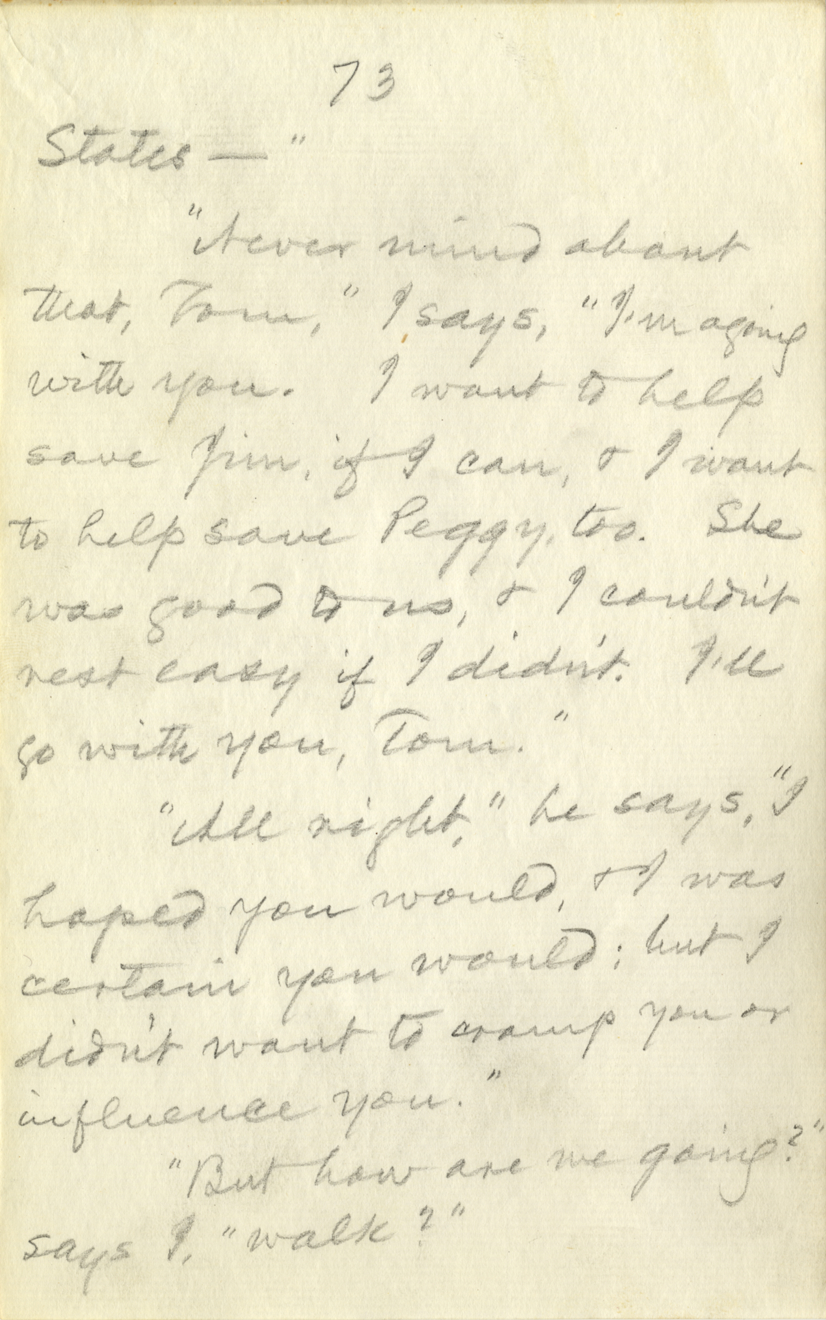 73
States — "
"Never mind about
that, Tom," I says, "I'm agoing
with you. I want to help
save Jim, if I can, & I want
to help save Peggy, too. She
was good to us, & I couldn't
rest easy if I didn't. I'll
go with you, Tom."
"All right," he says, "I
hoped you would, & I was
certain you would; but I
didn't want to cramp you or
influence you."
"But how are we going?"
says I, "walk?"